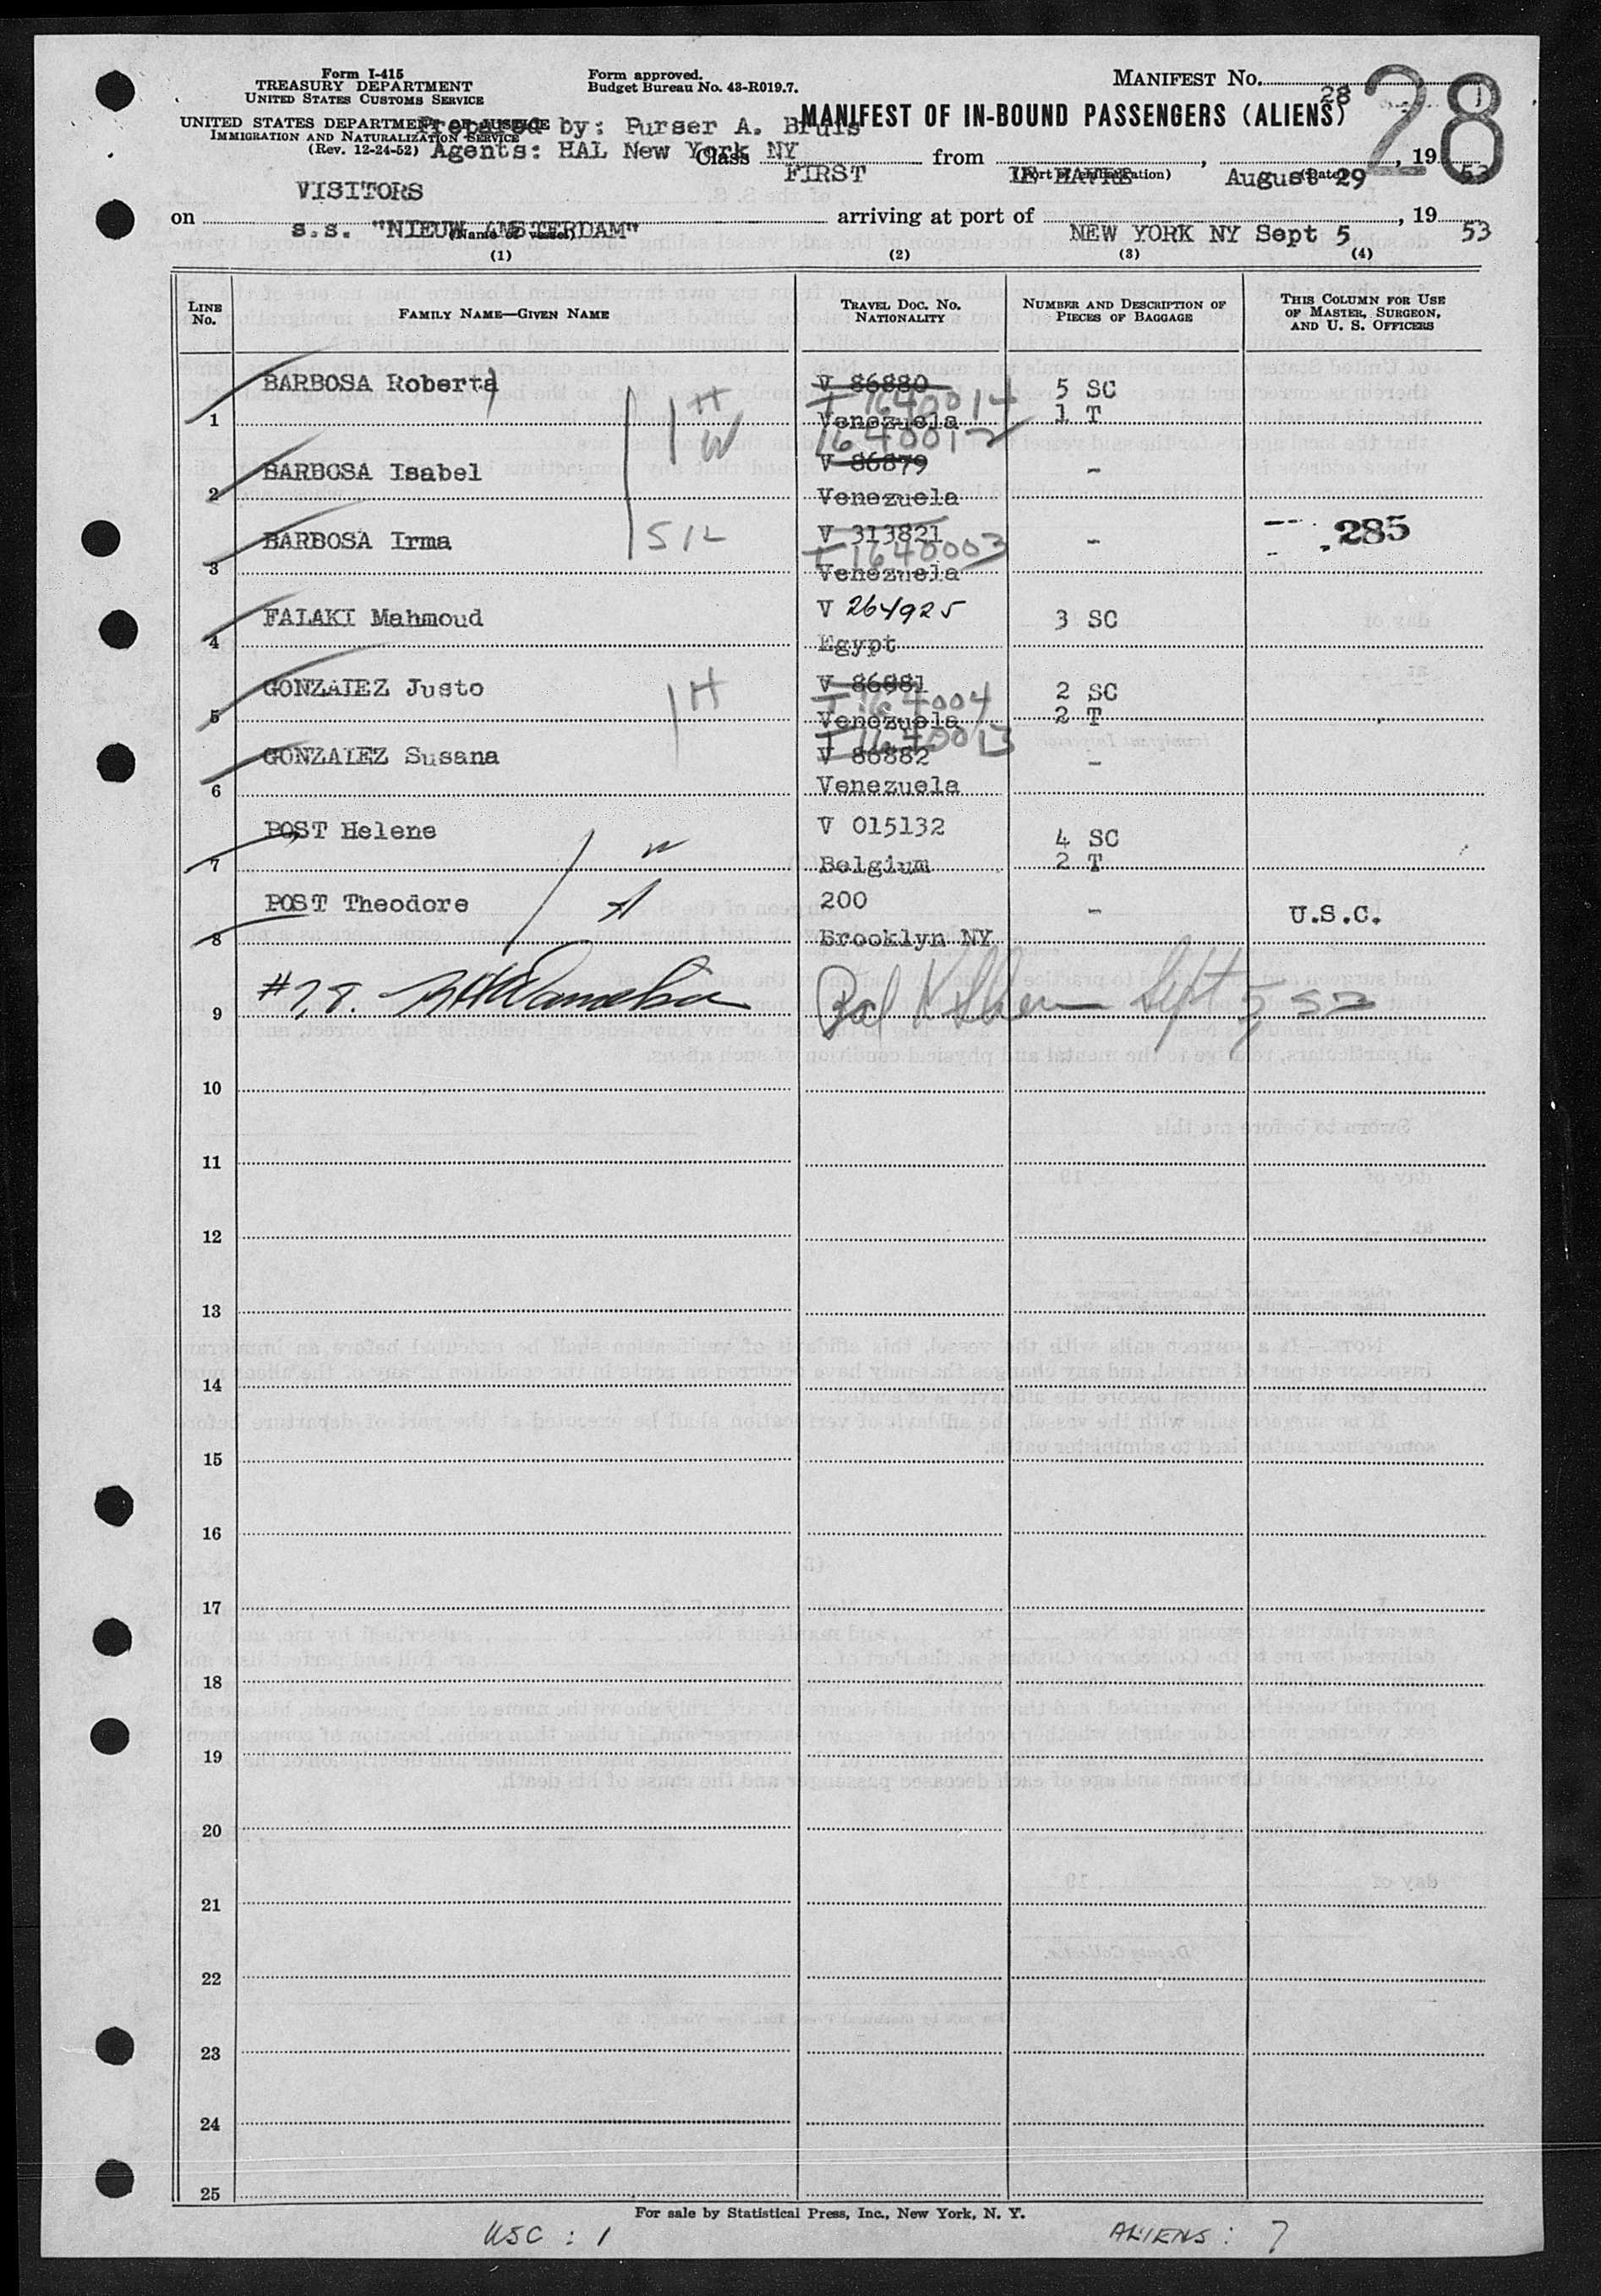 Form I-415
TREASURY DEPARTMENT
UNITED STATES CUSTOMS SERVICE
UNITED STATES DEPARTMENT OF JUSTICE
IMMIGRATION AND NATURALIZATION SERVICE
(Rev. 12-24-52)
Form approved.
Budget Bureau No. 43-R019.7.
MANIFEST NO.
28
28
MANIFEST OF IN-BOUND PASSENGERS (ALIENS)
Prepared by: Purser A. Bruis
Agents: HAL New York NY
Class FIRST from LE HAVRE, August 29, 1953
(Port of embarkation) (Date)
VISITORS
on s.s. "NIEUW AMSTERDAM" arriving at port of NEW YORK NY Sept 5, 1953
(Name of vessel)
(1) (2) (3) (4)
LINE NO.
FAMILY NAME—GIVEN NAME
TRAVEL DOC. NO. NATIONALITY
NUMBER AND DESCRIPTION OF PIECES OF BAGGAGE
THIS COLUMN FOR USE OF MASTER, SURGEON, AND U. S. OFFICERS
1 BARBOSA Roberta V 86880 5 SC
H I 1640014
Venezuela 1 T
W 1640012
2 BARBOSA Isabel V 86879 -
Venezuela
3 BARBOSA Irma V 313821 - 285
I 1640003
Venezuela
4 FALAKI Mahmoud V 264925 3 SC
Egypt
5 GONZALEZ Justo H V 86981 2 SC
I 164004
Venezuela 2 T
I 1640013
6 GONZALEZ Susana V 86882 -
Venezuela
7 POST Helene W V 015132 4 SC
Belgium 2 T
8 POST Theodore 200 - U.S.C.
Brooklyn NY
9 #28. Sept 5, 53
10
11
12
13
14
15
16
17
18
19
20
21
22
23
24
25
For sale by Statistical Press, Inc., New York, N. Y.
USC : 1 ALIENS : 7